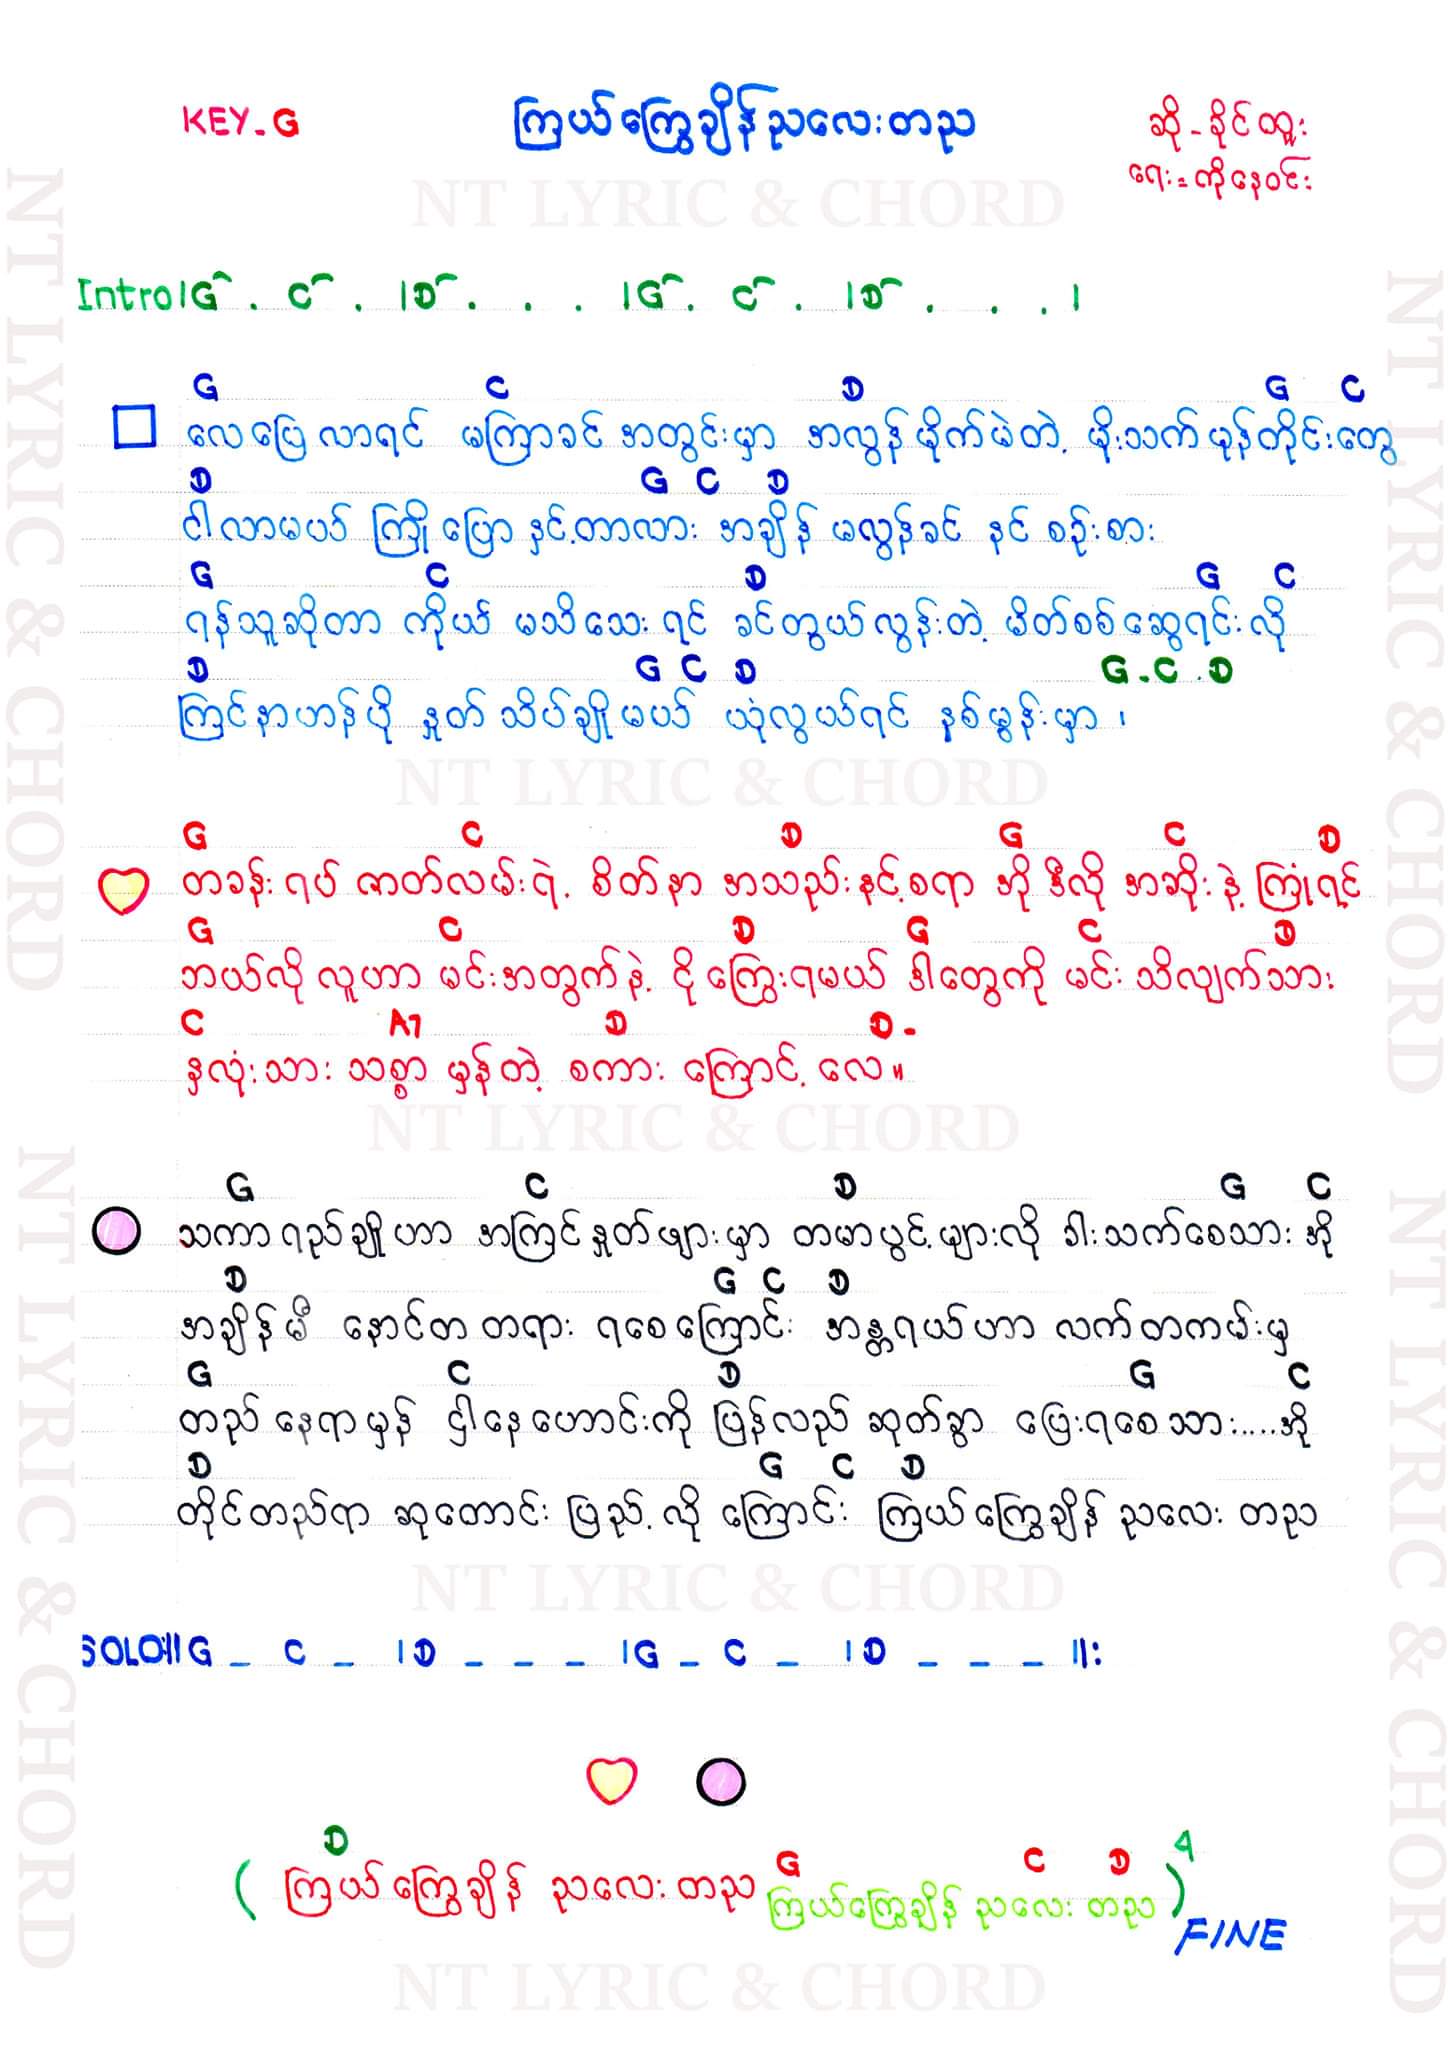 KEY-G
ကြယ်ကြွေချိန်ညလေးတည
ဆို-ခိုင်ထူး
ရေး=ကိုနေဝင်း
NT LYRIC & CHORD
Intro|G . C . |D . . . |G . C . |D . . . |
G C D G C
လေပြေလာရင် မကြာခင်အတွင်းမှာ အလွန်မိုက်မဲတဲ့ မိုးသက်မုန်တိုင်းတွေ
D G C D
ငါလာမယ် ကြိုပြောနှင့်တာလား အချိန်မလွန်ခင် နင်စဉ်းစား
G C D G C
ရန်သူဆိုတာ ကိုယ်မသိသေးရင် ခင်တွယ်လွန်းတဲ့ မိတ်စစ်ဆွေရင်းလို
D G C D G.C.D
ကြင်နာဟန်ပို နှုတ်သိပ်ချိုမယ် ယုံလွယ်ရင် နှစ်မွန်းမှာ၊
NT LYRIC & CHORD
G C D G C D
တခန်းရပ် ဇာတ်လမ်းရဲ့ စိတ်နာ အသည်းနင့်စရာ အို ဒီလို အဆိုးနဲ့ ကြုံရင့်
G C D G C D
ဘယ်လိုလူဟာ မင်းအတွက်နဲ့ ငိုကြွေးရမယ် ဒါတွေကို မင်း သိလျက်သား
C A7 D D-
နှလုံးသား သစ္စာ မှန်တဲ့ စကား ကြောင့် လေ။
NT LYRIC & CHORD
G C D G C
သကာရည်ချိုဟာ အကြင်နှုတ်ဖျားမှာ တမာပွင့်များလို ခါးသက်စေသား အို
D G C D
အချိန်မီ နောင်တတရား ရစေကြောင်း အန္တရယ်ဟာ လက်တကမ်းမှ
G C D G C
တည်နေရာမှန် ဌါနေဟောင်းကို ပြန်လည်ဆုတ်ခွာ ပြေးရစေသား....အို
D G C D
တိုင်တည်ရာ ဆုတောင်း ပြည့်လို့ ကြောင်း ကြယ်ကြွေချိန် ညလေး တည
NT LYRIC & CHORD
SOLO:||G _ C _ |D _ _ _ |G _ C _ |D _ _ _ ||:
D G C D
( ကြယ်ကြွေချိန် ညလေးတည ကြယ်ကြွေချိန် ညလေး တည )4
FINE
NT LYRIC & CHORD
NT LYRIC & CHORD
NT LYRIC & CHORD
NT LYRIC & CHORD
NT LYRIC & CHORD